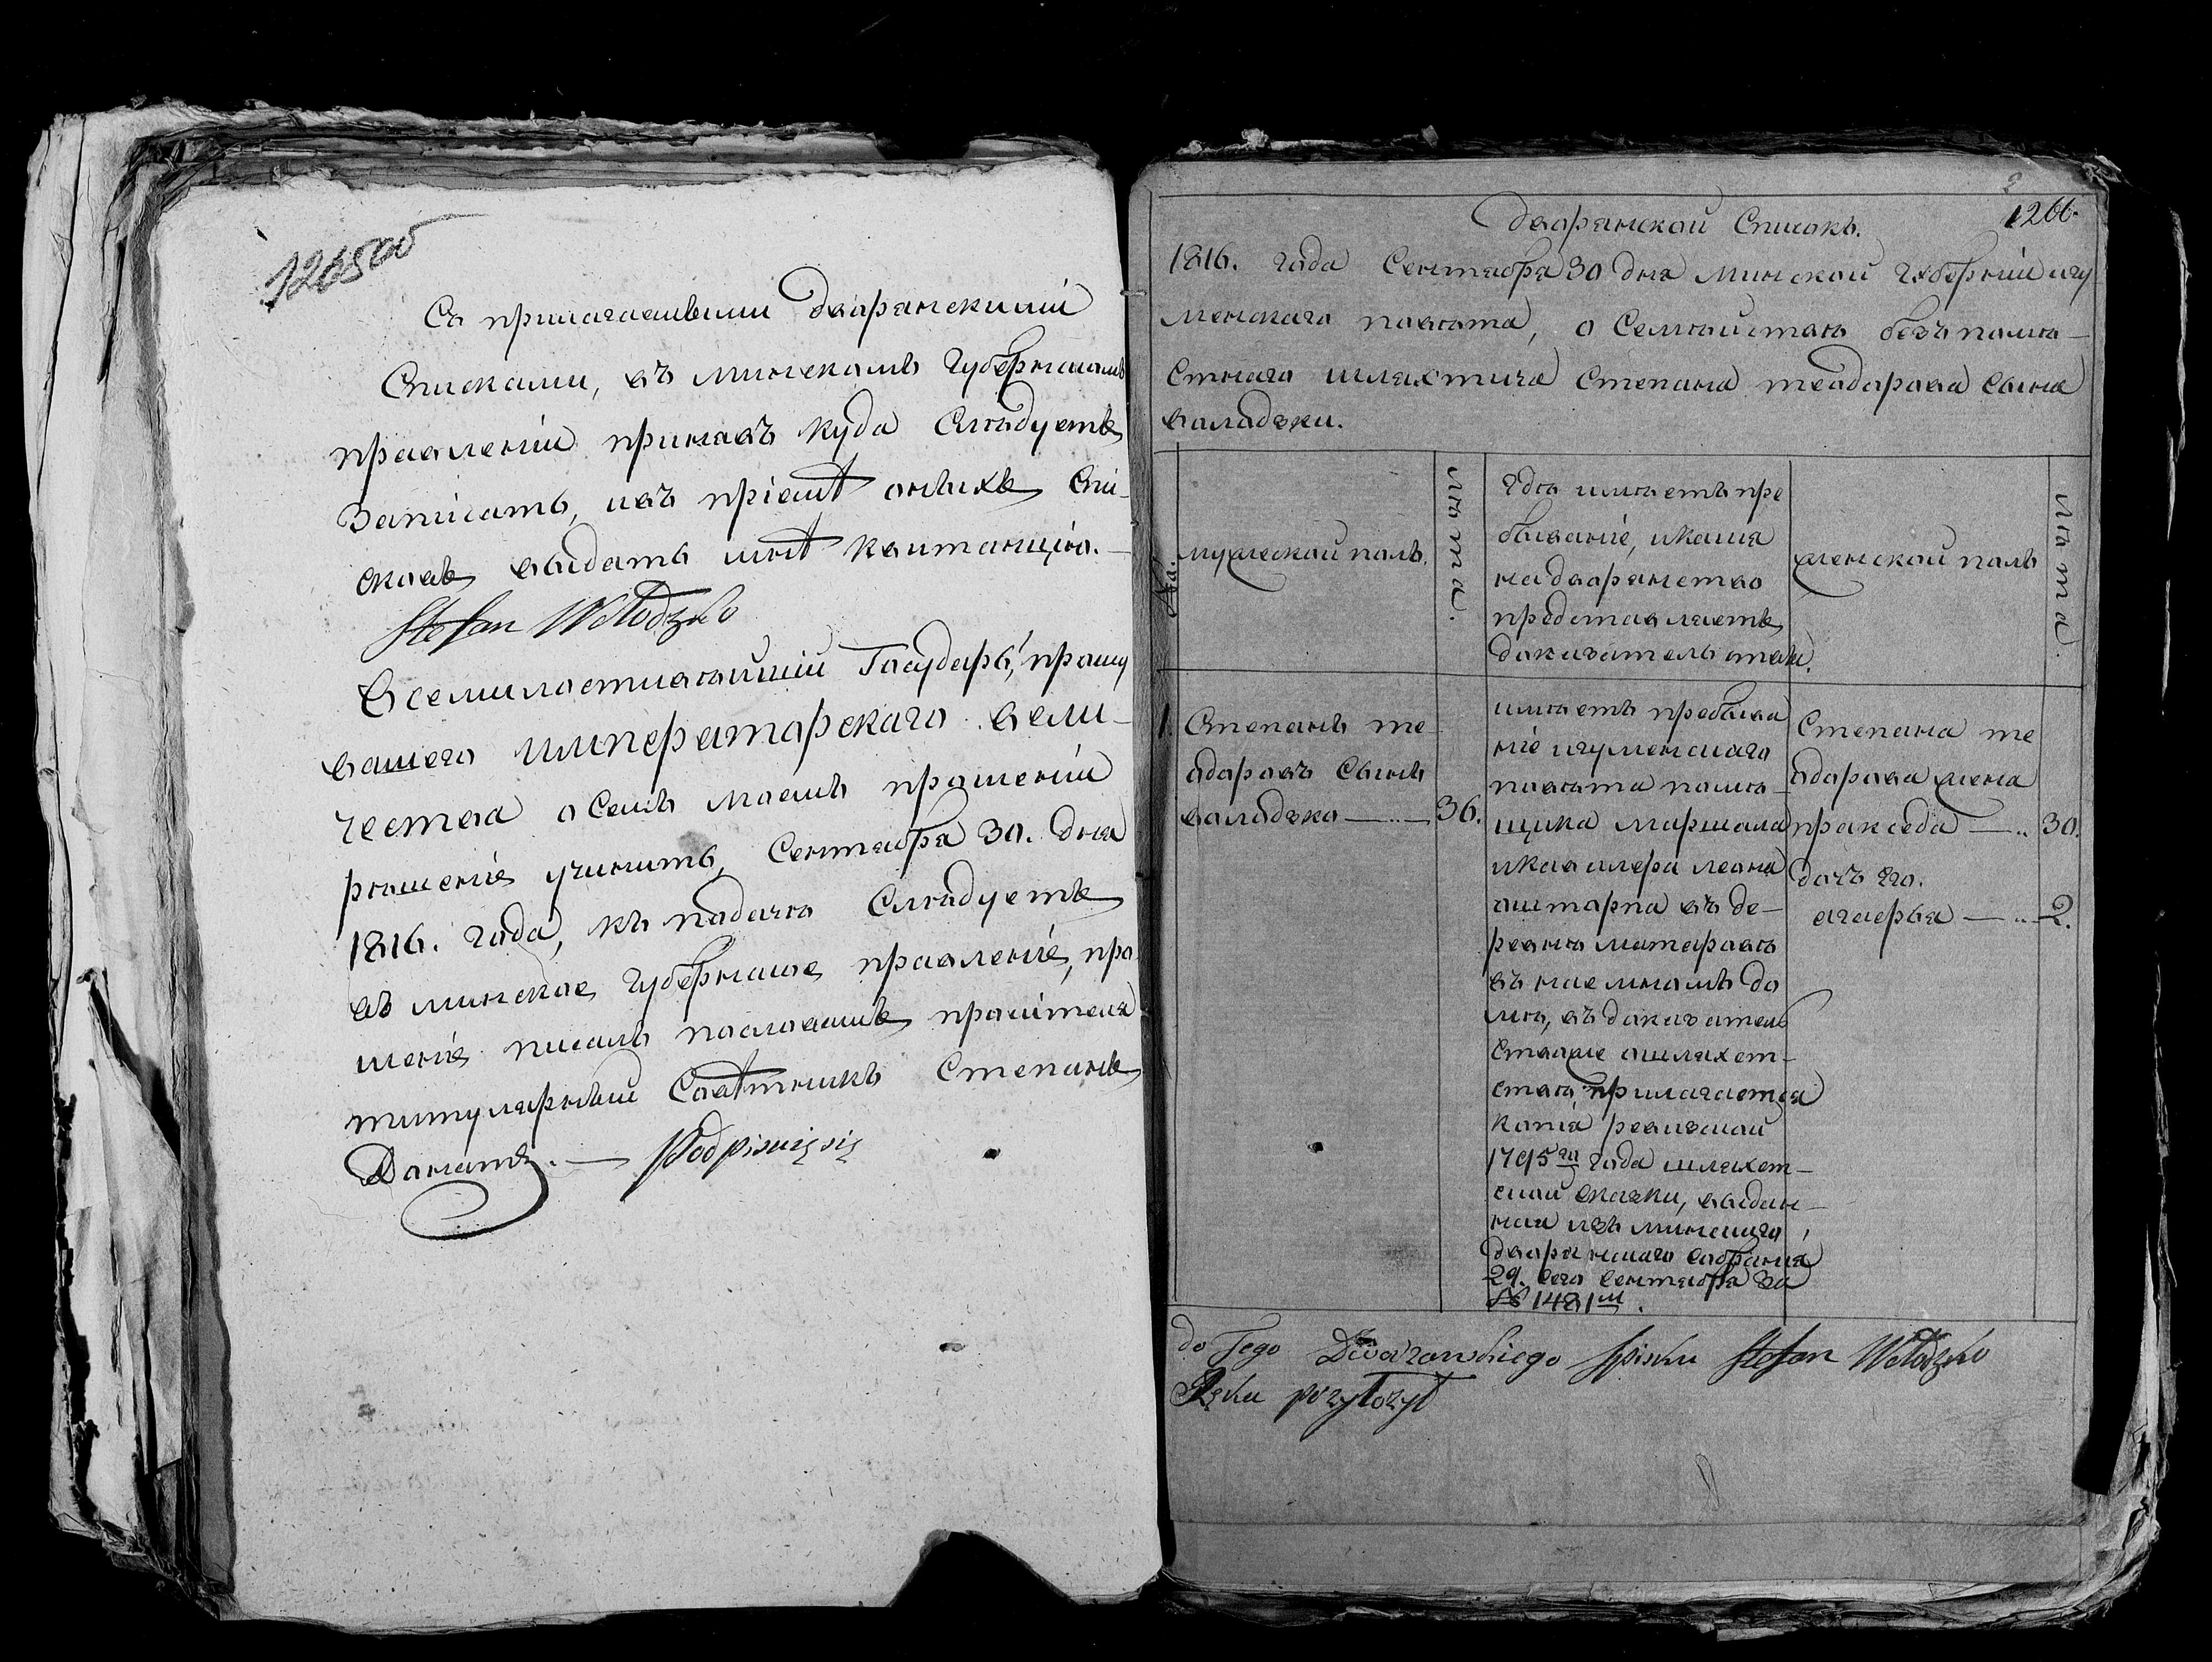 1265 об
Съ прилагаемыми дворянскими
Списками, въ минскомъ губернскомъ
правленіи принявъ куда Слѣдуетъ
Записать, и въ пріемѣ оныхъ Спи-
сковъ выдать мнѣ квитанцію.
Stefan Wołodzko
Всемилостивѣйшій Государь, прошу
вашего императорскаго вели-
чества о семъ моемъ прошеніи
рѣшеніе учинить, Сентября 30. дня
1816. года, къ подачѣ Слѣдуетъ
въ минское губернское правленіе, про
шеніе писалъ пословамъ просителя
титулярный Совѣтникъ Степанъ
Podpisuię się
1266.
дворянской Списокъ.
1816. года Сентября 30 дня Минской губерніи игу
менскаго повѣта, о Семѣйствѣ безъ помѣ-
стнаго шляхтича Степана теодорова Сына
володзки.
№.
мужеской полъ.
лѣта.
гдѣ имѣетъ пре
бываніе, и какія
на дворянство
предстовляетъ
доказательствы.
женской полъ
лѣта
1. Степанъ те
одоровъ Сынъ
володзко 36.
имѣетъ пребыва
ніе игуменскаго
повѣта помѣ-
щика Маршала
и кавалера леона
оштарпа въ де-
ревнѣ матаровѣ
въ наемномъ до
мѣ, въ доказатель
ство же о шляхет-
ствѣ, прилагается
копія ревизской
1795го года шляхет-
ской сказки, выдан-
ная изъ минскаго
дворянскаго собранія
29. сего сентября за
№ 1481м.
Степана те
одорова жена
праксeда 30.
дочъ его.
2.
do Tego Dworzanskiego Spisku Stefan Wołodzko
Rękę przyłożył